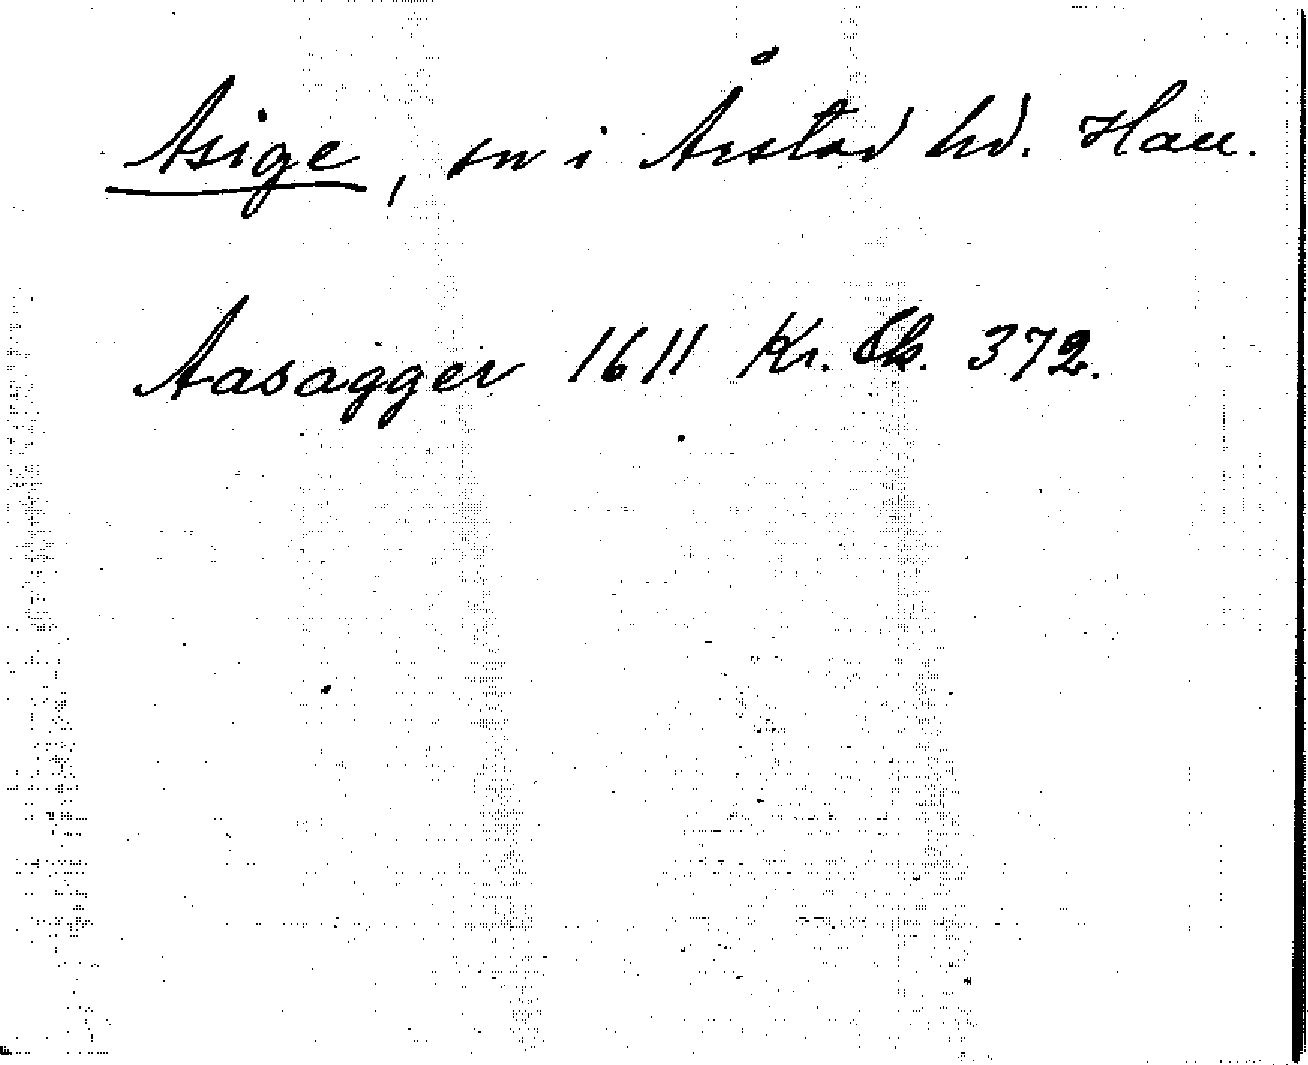 Asige, sn i Årstad hd. Hall.
Aasagger 1611 Kr. Sk. 372.